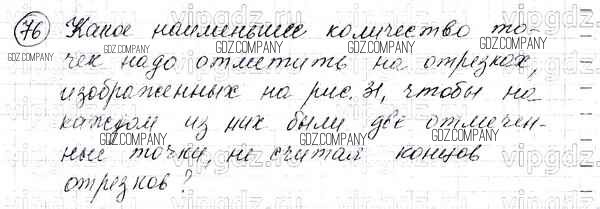 76 Какое наименьшее количество то-
чек надо отметить на отрезках,
изображенных на рис. 31, чтобы на
каждом из них были две отмечен-
ные точки, не считая концов
отрезков?
GDZ.COMPANY GDZ.COMPANY GDZ.COMPANY
GDZ.COMPANY GDZ.COMPANY GDZ.COMPANY
vipgdz vipgdz.ru vipgdz.ru